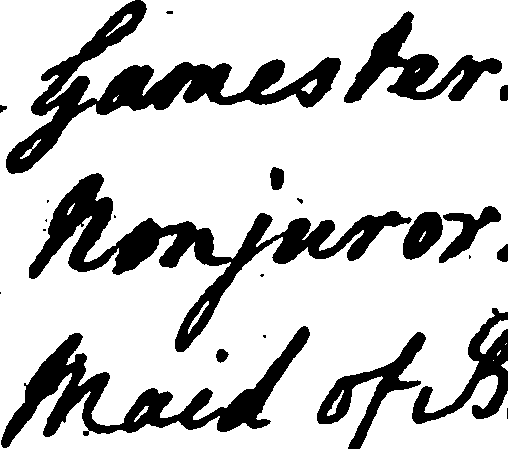 Gamester.
Nonjuror.
Maid of B